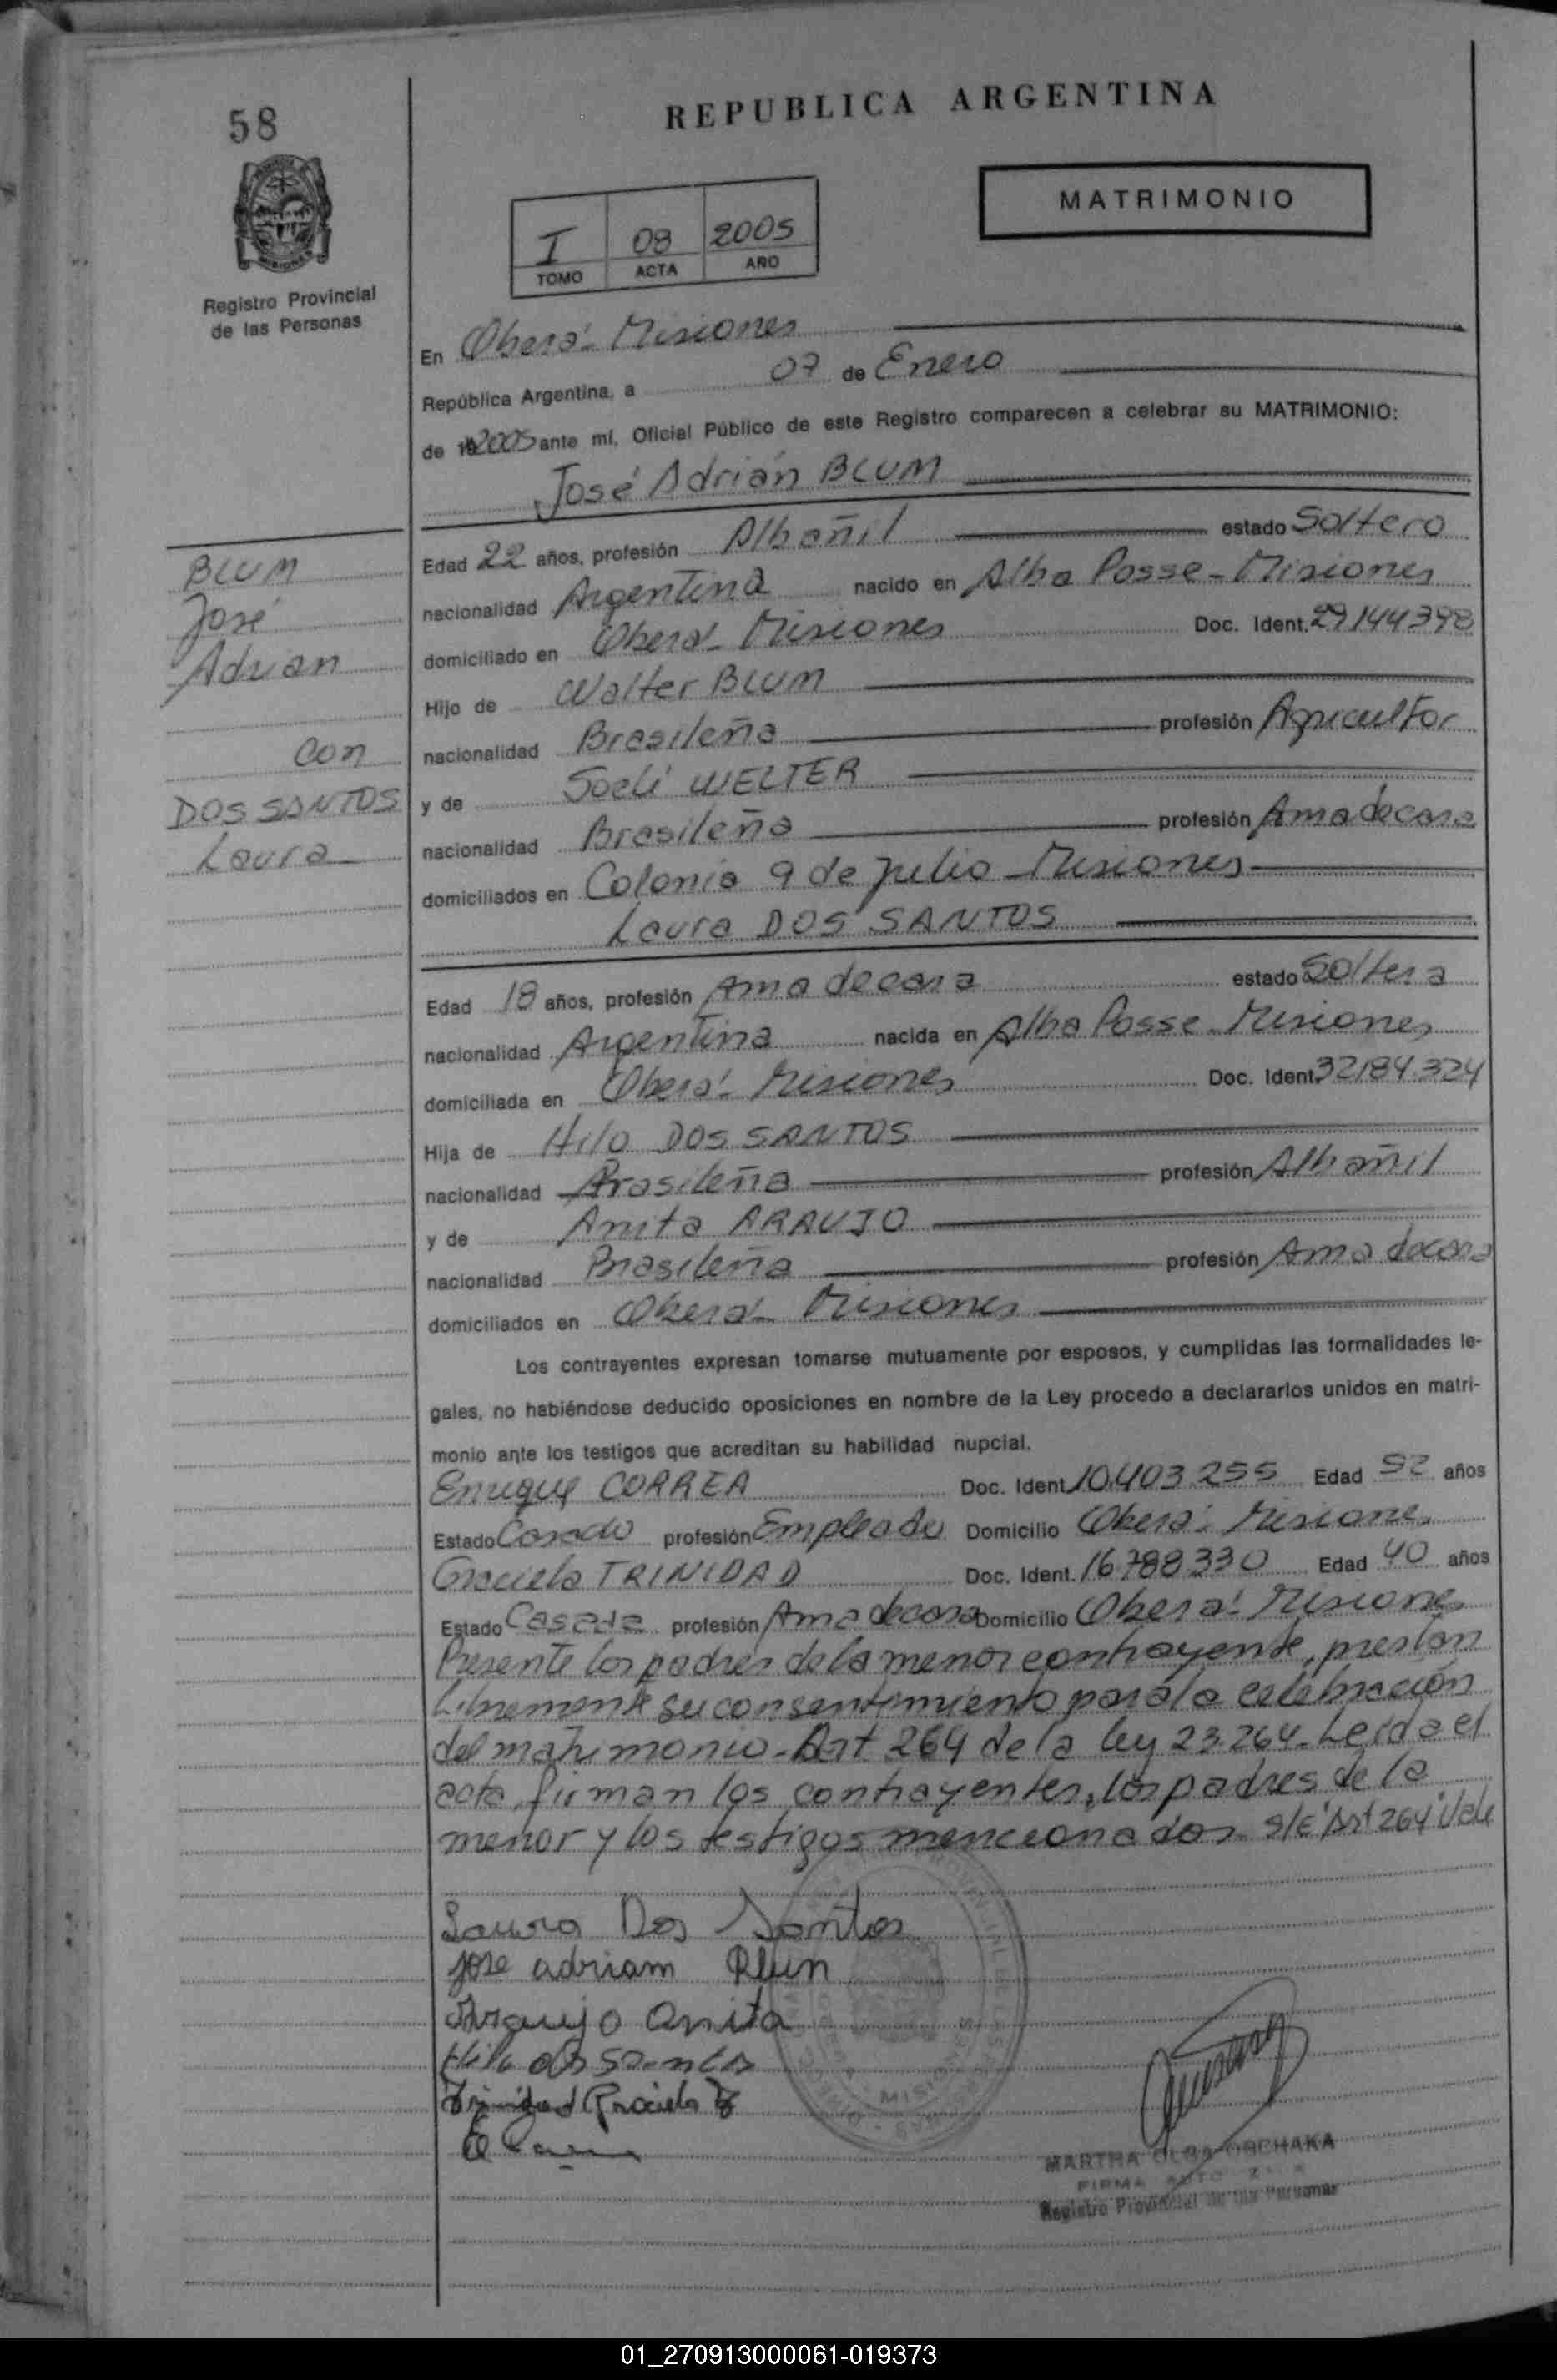 58
REPUBLICA ARGENTINA
MATRIMONIO
I 08 2005
TOMO ACTA AÑO
Registro Provincial
de las Personas
En Oberá - Misiones
República Argentina, a 07 de Enero
de 19 2005 ante mí, Oficial Público de este Registro comparecen a celebrar su MATRIMONIO:
José Adrián BLUM
BLUM
José
Adrian
con
DOS SANTOS
Laura
Edad 22 años, profesión Albañil estado Soltero
nacionalidad Argentina nacido en Alba Posse - Misiones
domiciliado en Oberá - Misiones Doc. Ident. 29.144.398
Hijo de Walter BLUM
nacionalidad Brasileña profesión Agricultor
y de Soeli WELTER
nacionalidad Brasileña profesión Ama de casa
domiciliados en Colonia 9 de Julio - Misiones
Laura DOS SANTOS
Edad 18 años, profesión Ama de casa estado Soltera
nacionalidad Argentina nacida en Alba Posse - Misiones
domiciliada en Oberá - Misiones Doc. Ident. 32.184.324
Hija de Hilo DOS SANTOS
nacionalidad Brasileña profesión Albañil
y de Anita ARAUJO
nacionalidad Brasileña profesión Ama de casa
domiciliados en Oberá - Misiones
Los contrayentes expresan tomarse mutuamente por esposos, y cumplidas las formalidades le-
gales, no habiéndose deducido oposiciones en nombre de la Ley procedo a declararlos unidos en matri-
monio ante los testigos que acreditan su habilidad nupcial.
Enrique CORREA Doc. Ident. 10.403.255 Edad 52 años
Estado Casado profesión Empleado Domicilio Oberá - Misiones
Graciela TRINIDAD Doc. Ident. 16.788.330 Edad 40 años
Estado Casada profesión Ama de casa Domicilio Oberá - Misiones
Presente los padres de la menor contrayente, prestan
libremente su consentimiento para la celebración
del matrimonio - Art 264 de la ley 23.264 - Leída el
acta, firman los contrayentes, los padres de la
menor y los testigos mencionados - s/e "Art 264" Vale
Laura Dos Santos
jose adriam Blum
Araujo anita
Hilo dos santos
Trinidad Graciela
MISIONES
MARTHA OLGA OBCHAKA
FIRMA
Registro Provincial de las Personas
01_270913000061-019373